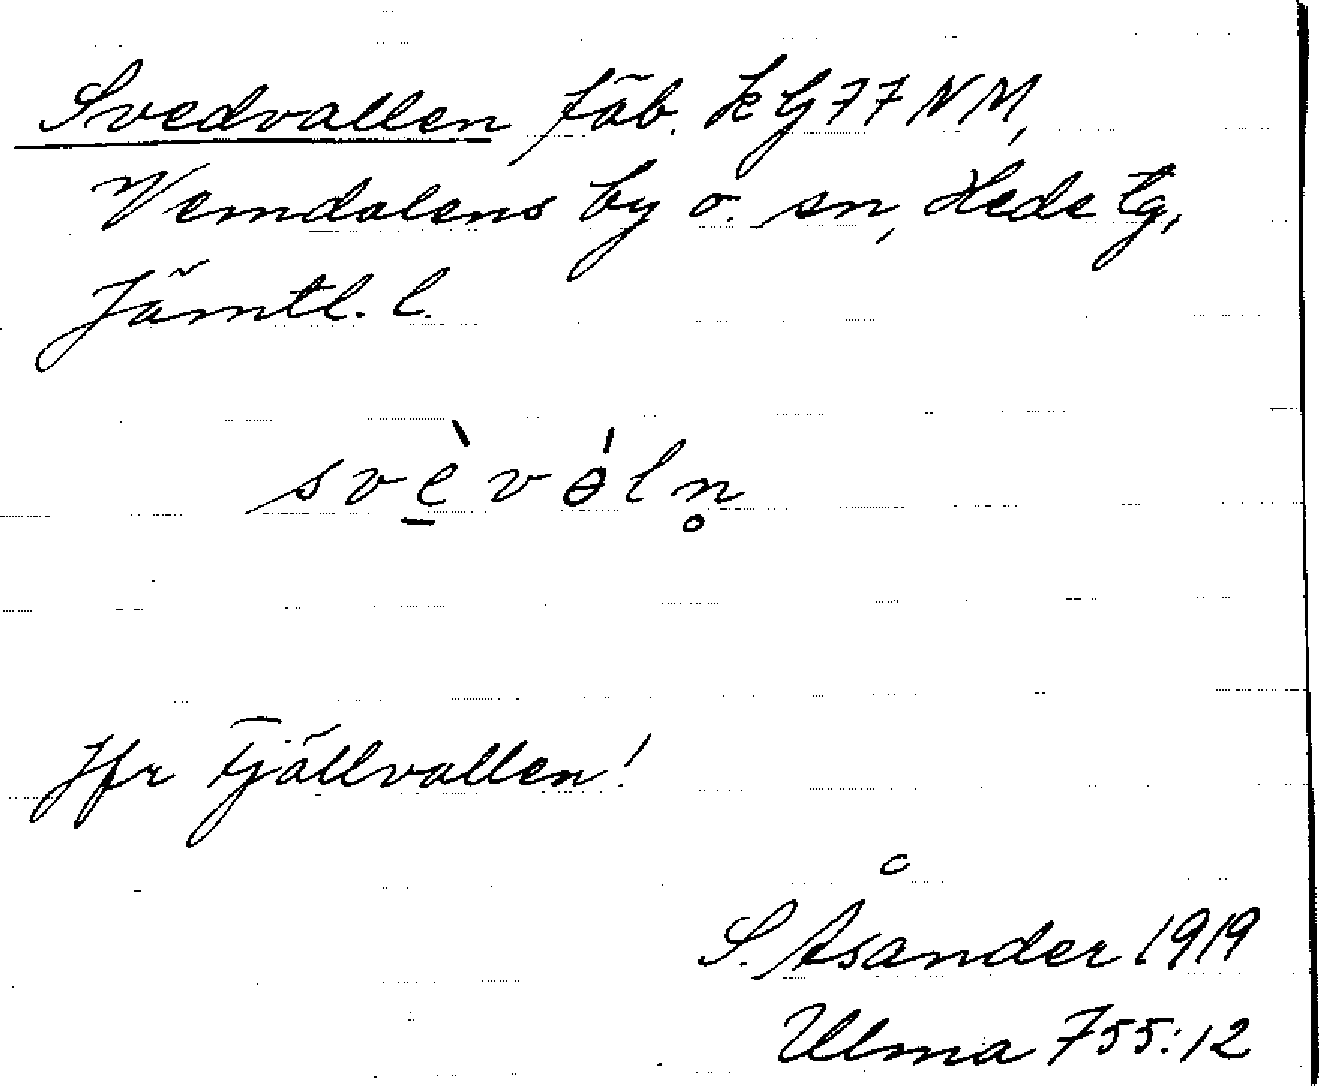 Svedvallen fäb. kG77NM,
Vemdalens by o. sn, Hede tg,
Jämtl. l.
svèvəln̥
Jfr Fjällvallen!
S. Åsander 1919
Ulma 755:12